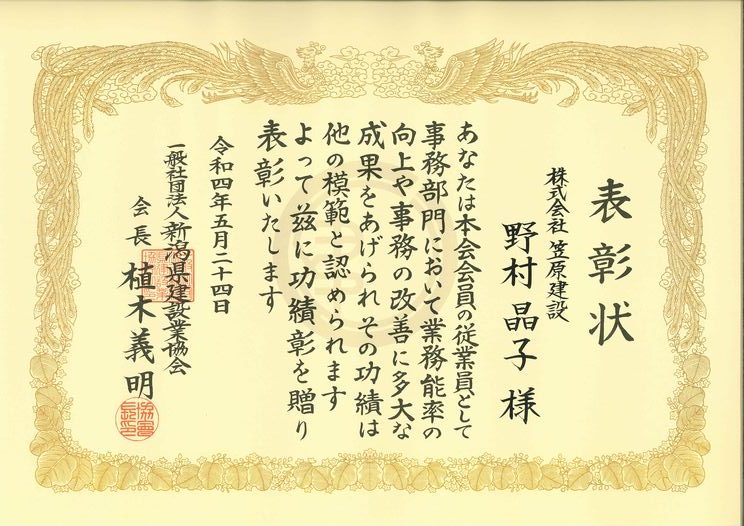 表彰状
株式会社 笠原建設
野村晶子様
あなたは本会会員の従業員として
事務部門において業務能率の
向上や事務の改善に多大な
成果をあげられその功績は
他の模範と認められます
よって茲に功績彰を贈り
表彰いたします
令和四年五月二十四日
一般社団法人新潟県建設業協会
会長 植木義明